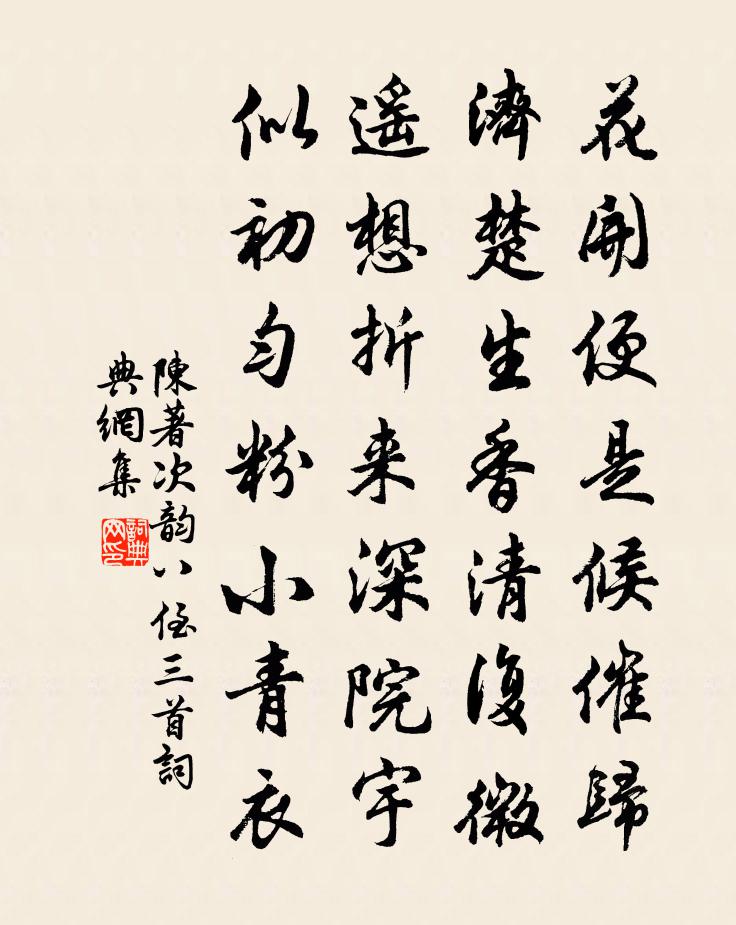 花開便是候催歸
濟楚生香清復微
遥想折来深院宇
似初匀粉小青衣
陳著次韵八侄三首詞
典網集
詞典網印